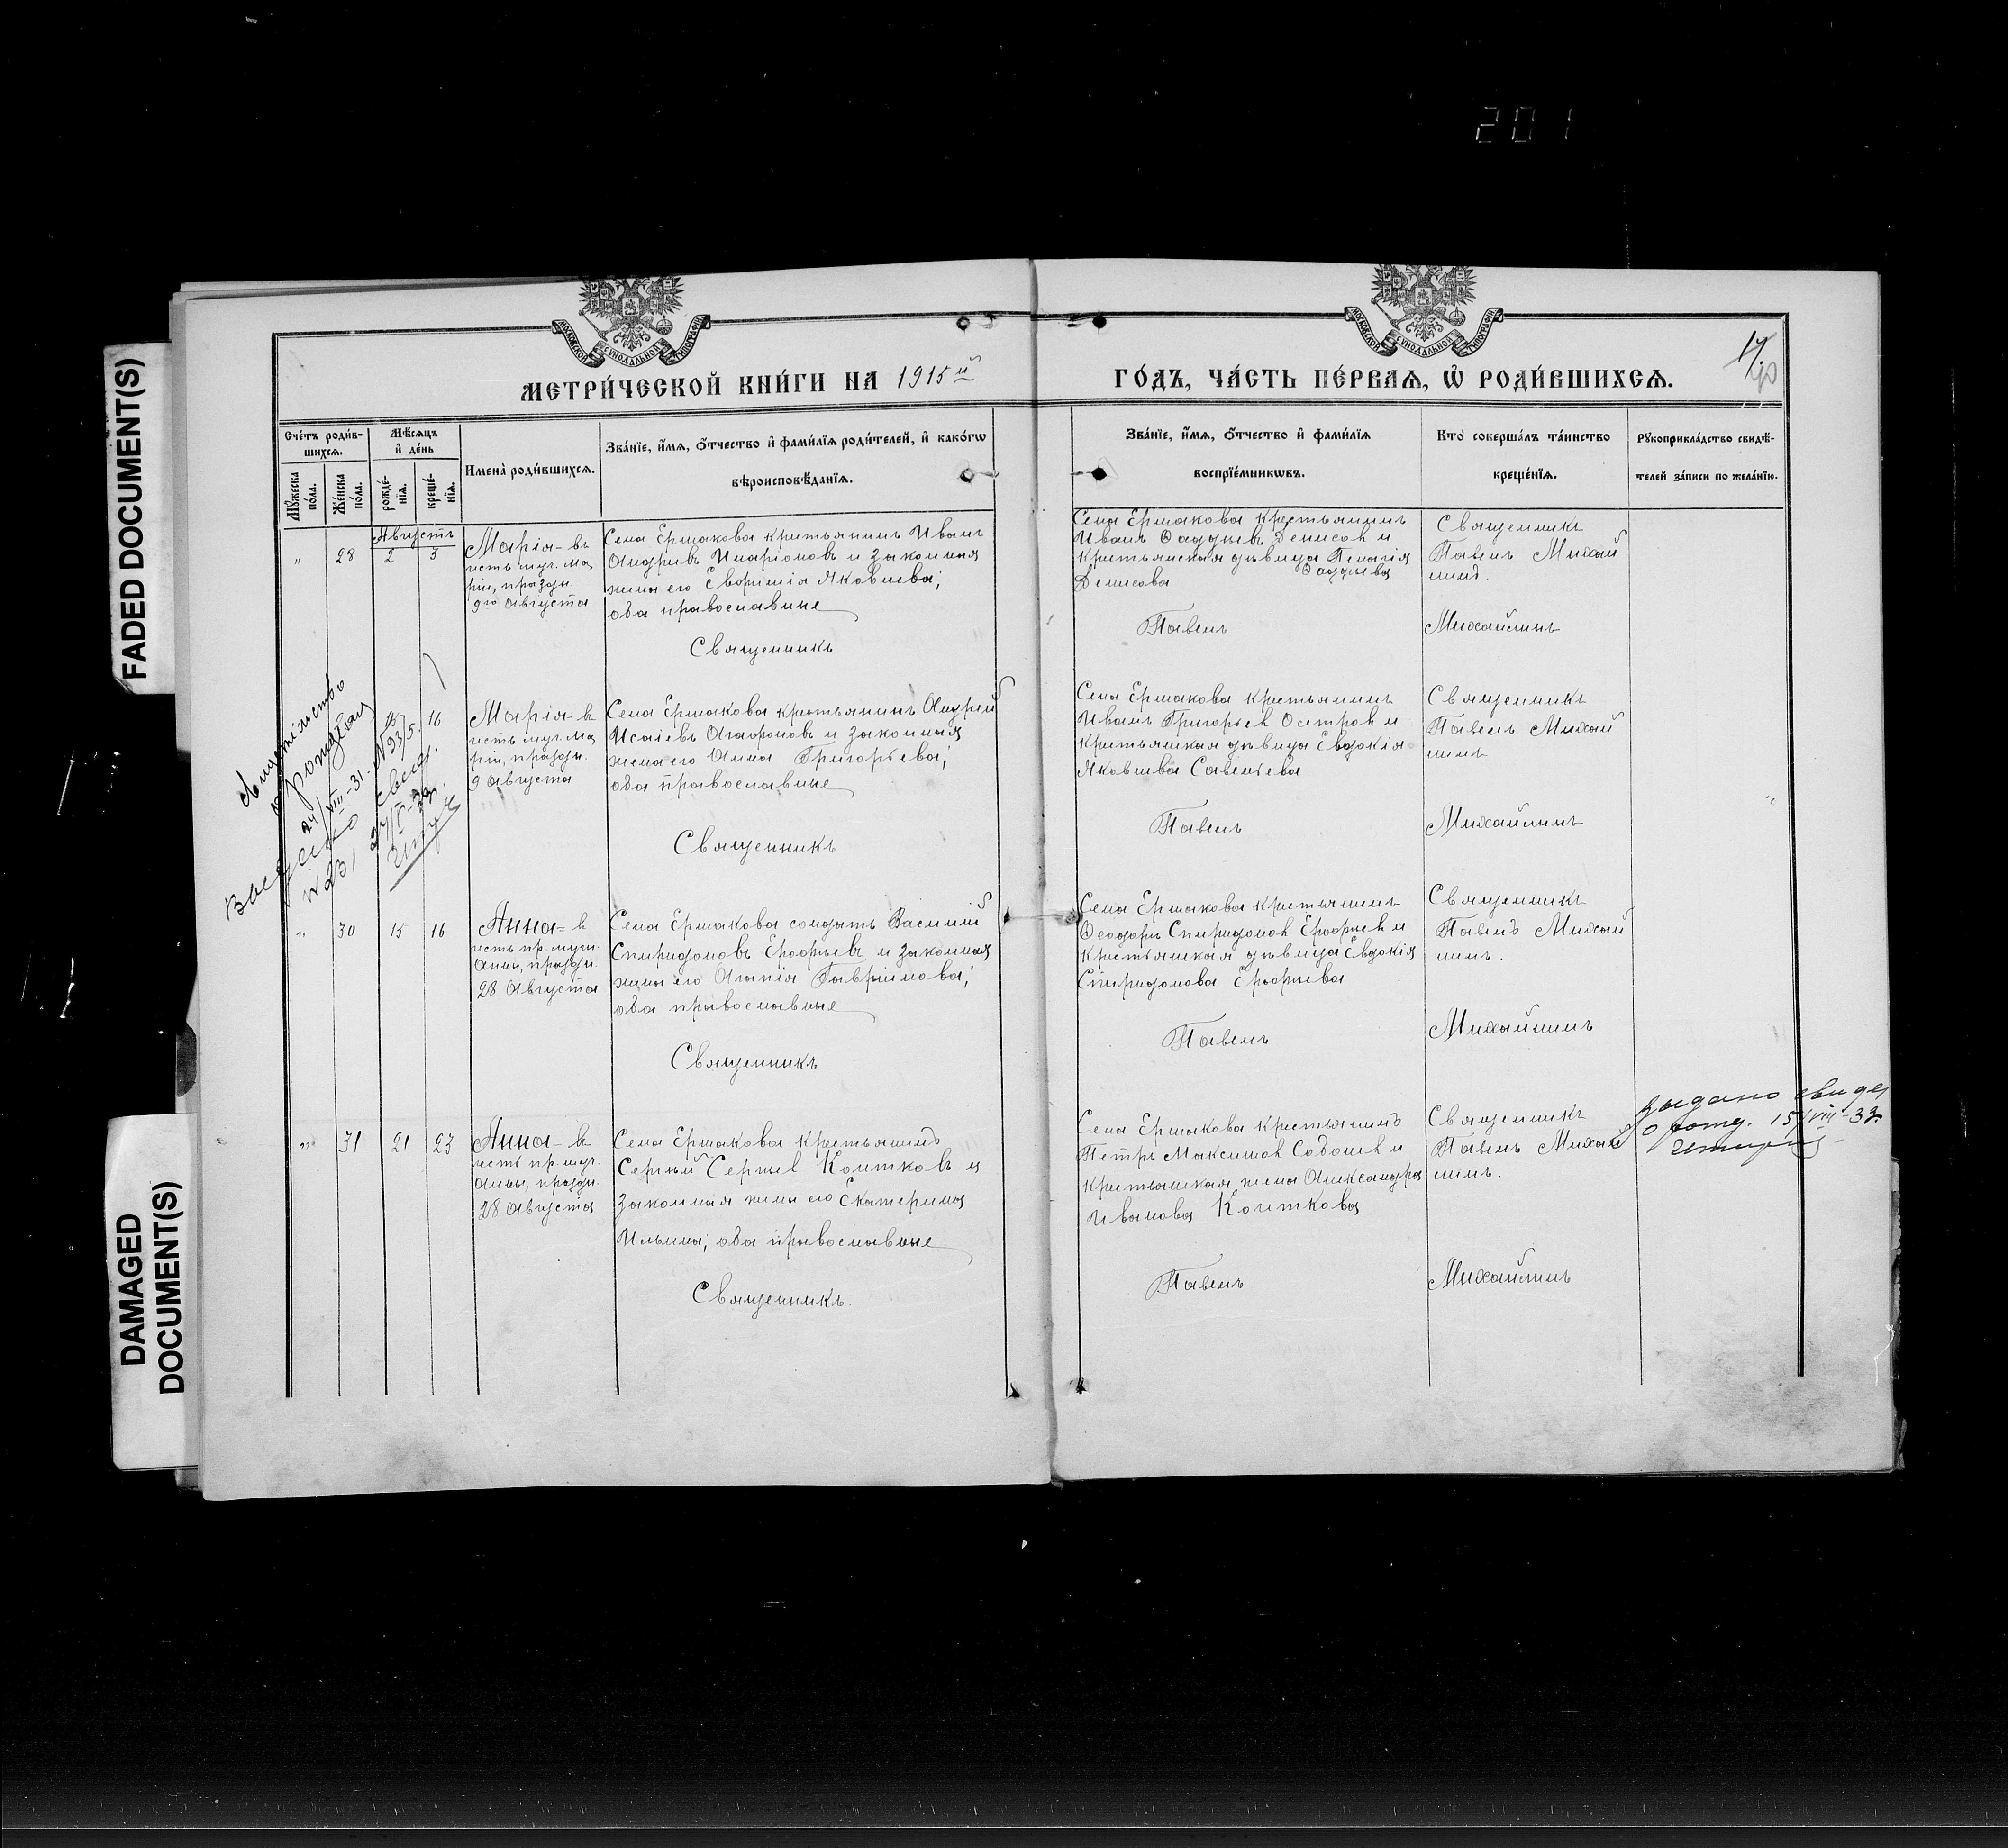 201
FADED DOCUMENT(S)
DAMAGED
DOCUMENT(S)
МОСКОВСКОЙ СѴНОДАЛЬНОЙ ТИПОГРАФІИ
МОСКОВСКОЙ СѴНОДАЛЬНОЙ ТИПОГРАФІИ
17.
МЕТРИ́ЧЕСКОЙ КНИ́ГИ НА 1915й
ГО́ДЪ, ЧА́СТЬ ПЕ́РВАЯ, Ѡ҆ РОДИ́ВШИХСЯ.
Сче́тъ роди́в-
шихся.
Мѣ́сяцъ
и҆ де́нь
Мꙋжеска
по́ла.
Же́нска
по́ла.
рожде́-
нїя.
креще́-
нїя.
Имена̀ роди́вшихся.
Зва́нїе, и҆́мя, ѻ҆́тчество и҆ фами́лїя роди́телей, и҆ како́гѡ
вѣроисповѣ́данїя.
Зва́нїе, и҆́мя, ѻ҆́тчество и҆ фами́лїя
воспрїе́мникѡвъ.
Кто̀ соверша́лъ та́инство
креще́нїя.
Рꙋкоприкла́дство свидѣ́-
телей за́писи по жела́нїю.
Августъ
„ 28 2 3
Марія - въ
честь муч. Ма
ріи, праздн.
9го Августа
Села Ермакова крестьянинъ Иванъ
Андреевъ Иларіоновъ и законная
жена его Евфимія Яковлева;
оба православные
Священникъ
Села Ермакова крестьянинъ
Иванъ Ѳаддеевъ Денисов и
крестьянская дѣвица Пелагія
Ѳаддеева
Денисова
Павелъ
Священникъ
Павелъ Михай
линъ.
Михайлинъ
свидѣтельство
24/VIII-31. N93/5.
15 16
Марія - въ
честь муч. Ма
ріи, праздн.
9 Августа
Села Ермакова крестьянинъ Андрей
Исаіевъ Агафоновъ и законная
жена его Анна Григорьева;
оба православные
Священникъ
Села Ермакова крестьянинъ
Иванъ Григорьев Осетров и
крестьянская дѣвица Евдокія
Яковлева Савельева
Павелъ
Священникъ
Павелъ Михай
линъ
Михайлинъ
„ 30 15 16
Анна - въ
честь пр. муч.
Анны, праздн.
28 Августа
Села Ермакова солдатъ Василий
Спиридоновъ Ерофеевъ и законная
жена его Агапія Гавріилова;
оба православные
Священникъ
Села Ермакова крестьянинъ
Ѳеодоръ Спиридонов Ерофеев и
крестьянская дѣвица Евдокія
Спиридонова Ерофеева
Павелъ
Священникъ
Павелъ Михай
линъ.
Михайлинъ
„ 31 21 23
Анна - въ
честь пр. муч.
Анны, праздн.
28 Августа
Села Ермакова крестьянинъ
Сергий Сергеев Колтковъ и
законная жена его Екатерина
Ильина; оба православные
Священникъ.
Села Ермакова крестьянинъ
Петръ Максимов Садошев и
крестьянская жена Александра
Иванова Колткова
Павелъ
Священникъ
Павелъ Михай
линъ.
Михайлинъ
выдано свидет
о рожд. 15/VIII-33.